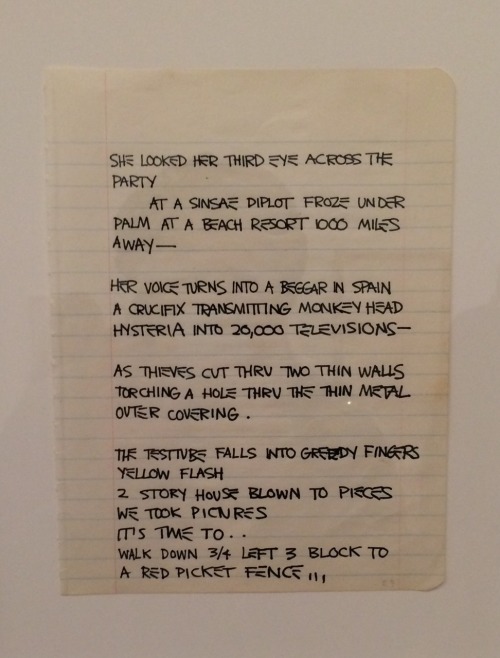 SHE LOOKED HER THIRD EYE ACROSS THE
PARTY
AT A SINSAE DIPLOT FROZE UNDER
PALM AT A BEACH RESORT 1000 MILES
AWAY—
HER VOICE TURNS INTO A BEGGAR IN SPAIN
A CRUCIFIX TRANSMITTING MONKEY HEAD
HYSTERIA INTO 20,000 TELEVISIONS—
AS THIEVES CUT THRU TWO THIN WALLS
TORCHING A HOLE THRU THE THIN METAL
OUTER COVERING .
THE TESTTUBE FALLS INTO GREEDY FINGERS
YELLOW FLASH
2 STORY HOUSE BLOWN TO PIECES
WE TOOK PICNRES
IT'S TIME TO . .
WALK DOWN 3/4 LEFT 3 BLOCK TO
A RED PICKET FENCE ,,,